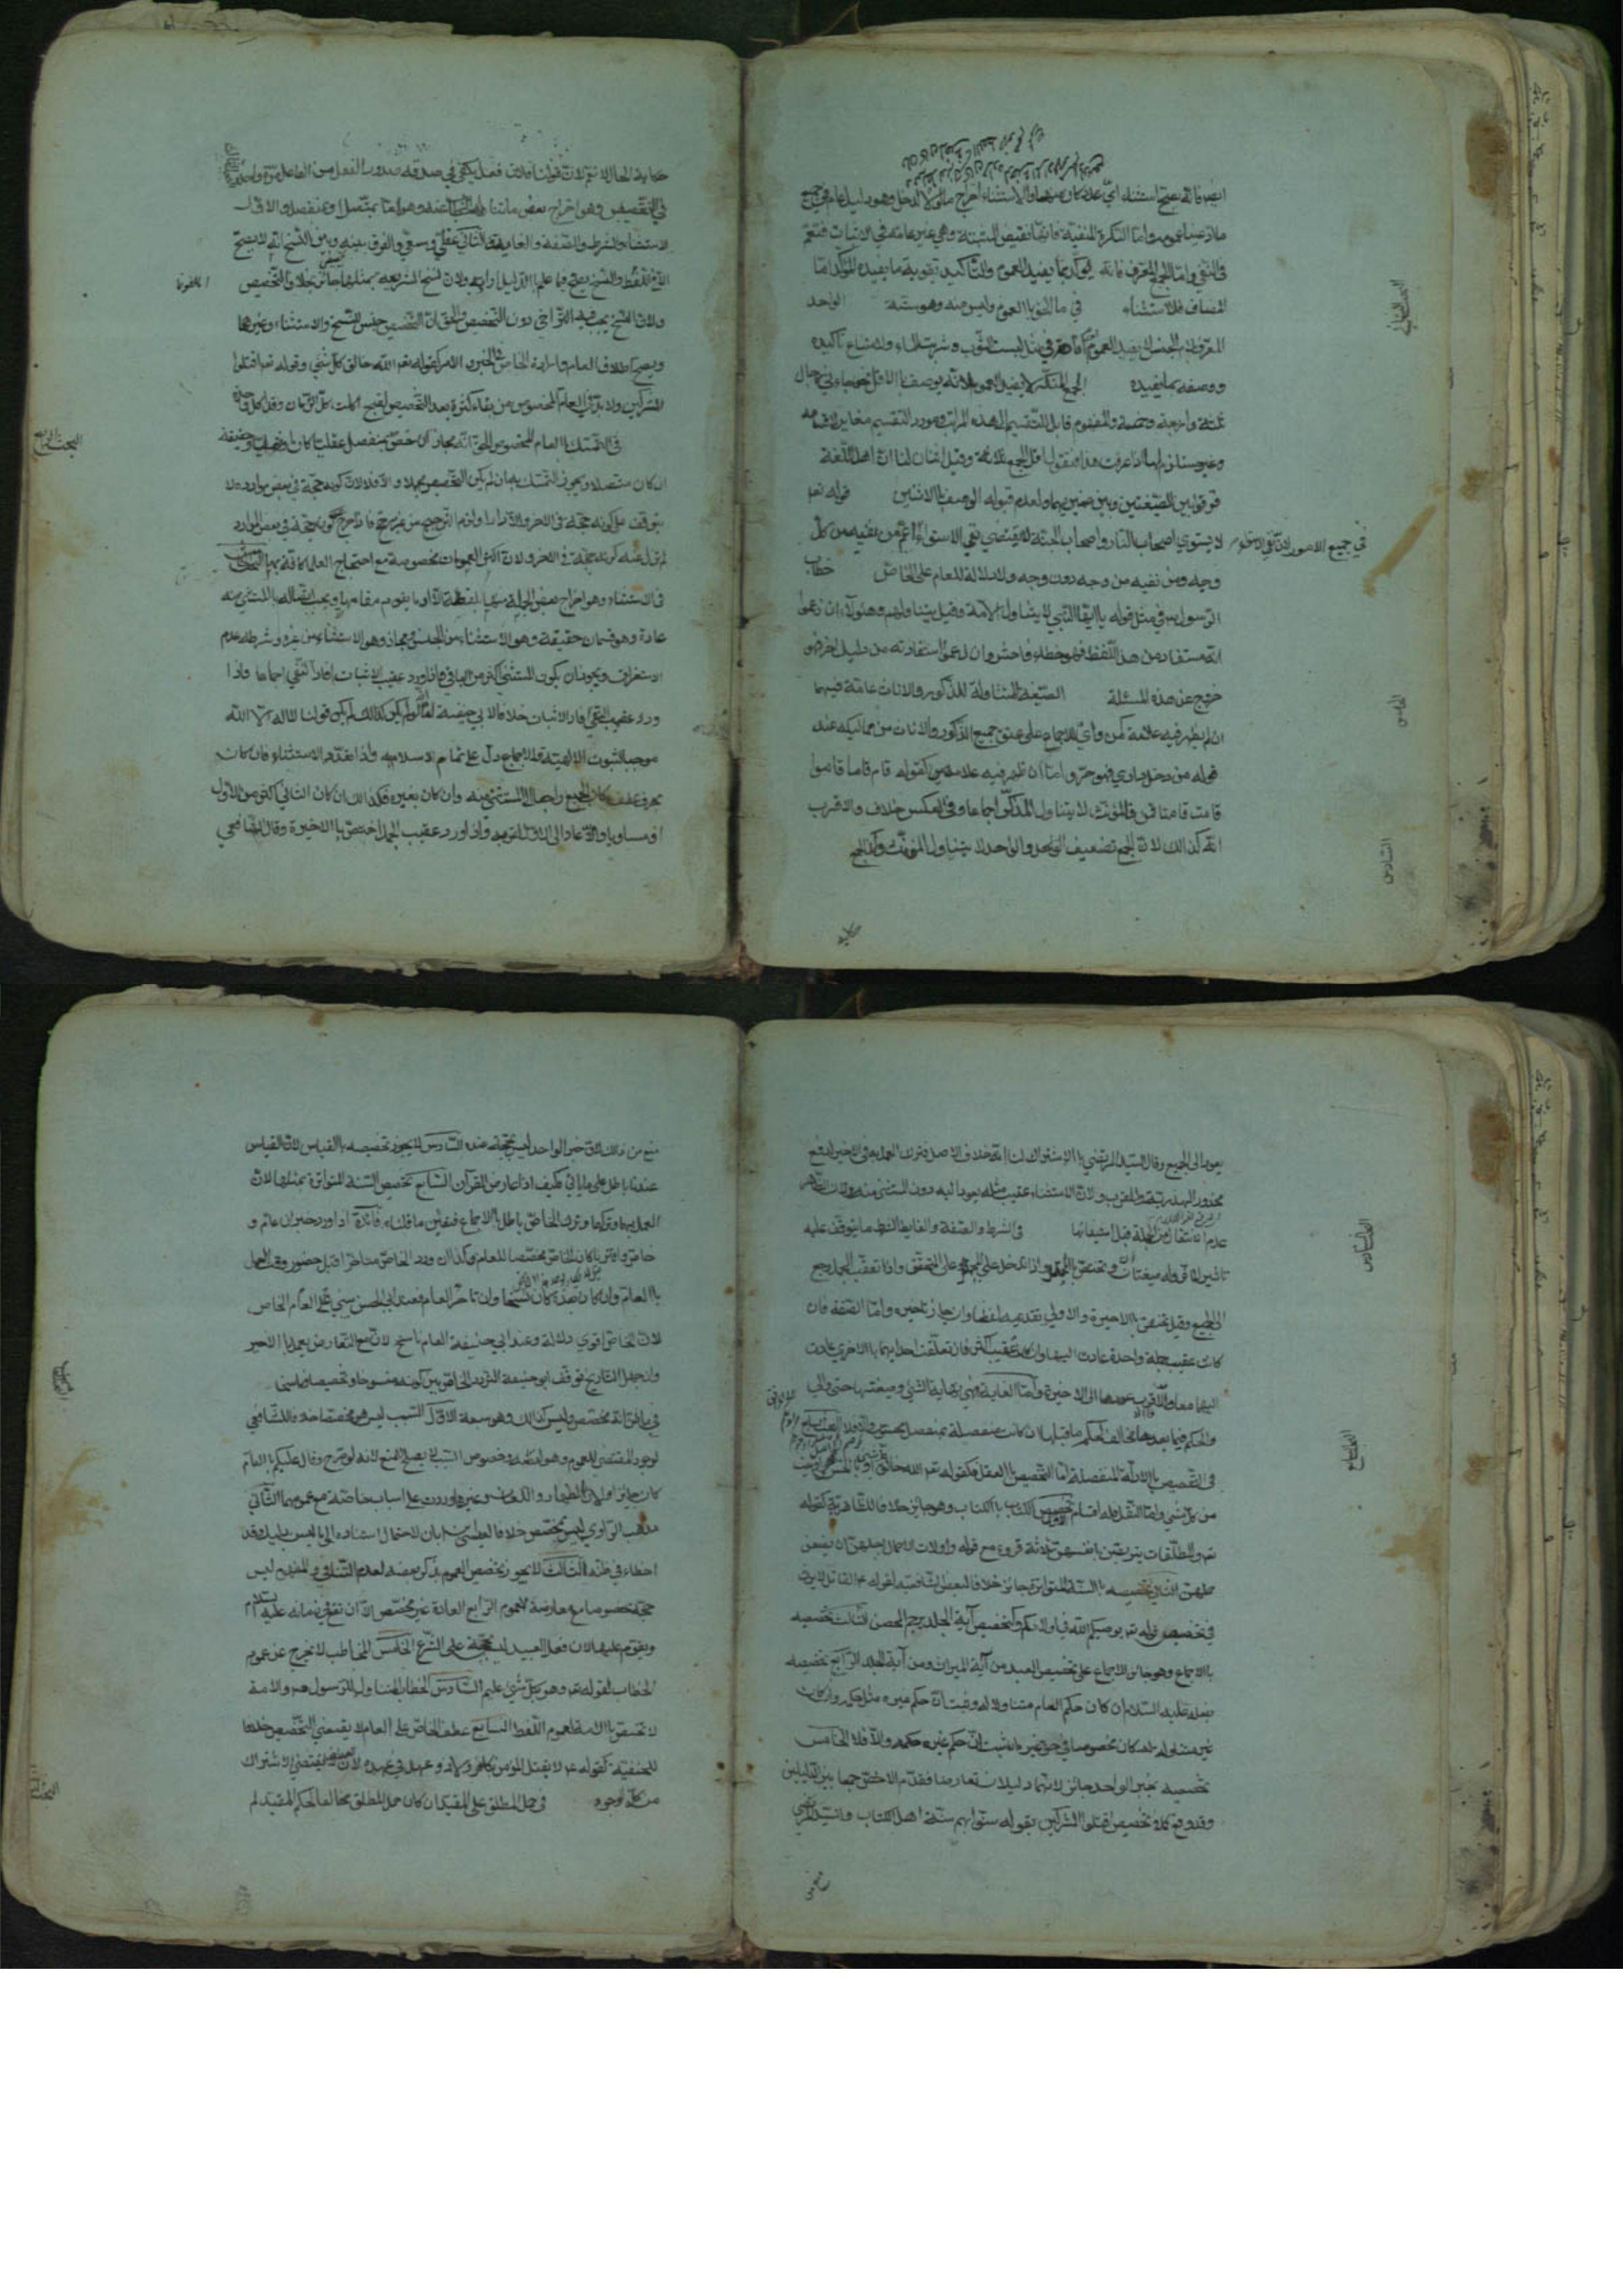 ايض فانه يصح استثناء اي عدد كان منهما والاستثناء اخراج مالولا لدخل وهو دليل عام في جميع
ما ادعينا عمومه واما النكرة المنفية فانها نقيض المثبتة وهي غير عامة في الاثبات فتعم
في النفي واما الجمع المعرف فانه يؤكد بما يفيد العموم والتأكيد تقوية ما يفيده المؤكد اما
المضاف فللاستثناء في ما الحق بالعموم وليس منه وهو ستة الواحد
المعرف بلام الجنس لا يفيد العموم في مثل لبست الثوب وشربت الماء ولامتناع تأكيده
ووصفه بما يفيده الجمع المنكر لا يفيد العموم لانه يوصف بالاقل نحو جاءني رجال
ثلثة واربعة وخمسة والمفهوم قابل للتقسيم الى هذه المراتب ومورد التقسيم مغاير لاقسامه
وغير مستلزم لها اذا عرفت هذا فنقول اقل الجمع ثلاثة وقيل اثنان لنا ان اهل اللغة
فرقوا بين الصيغتين وبين ضميريهما ولعدم قبوله الوصف بالاثنين قوله تعم
لا يستوي اصحاب النار واصحاب الجنة لا يقتضي نفي الاستواء اعم من نفيه من كل
في جميع الامور لان نفي الاستواء
وجه ومن نفيه من وجه دون وجه ولا دلالة للعام على الخاص خطاب
الرسول ص في مثل قوله يا ايها النبي لا يتناول الامة وقيل يتناولهم وهؤلاء ان زعموا
انه مستفاد من هذا اللفظ فهو خطاء فاحش وان زعموا استفادته من دليل اخر فهو
خروج عن هذه المسئلة الصيغة المتناولة للذكور والاناث عامة فيهما
ان لم يظهر فيه علامة كمن واي للاجماع على عتق جميع الذكور والاناث من مماليكه عند
قوله من دخل داري فهو حر واما ان ظهر فيه علامة كقوله قام قاما قاموا
قامت قامتا قمن فالمؤنث لا يتناول المذكر اجماعا وفي العكس خلاف والاقرب
انه كذالك لان الجمع تضعيف الواحد والواحد لا يتناول المؤنث وكذا الجمع
حكاية
السادس
حكاية الحال لا تعم لان قولنا فلان فعل يكفي في صدقه صدور الفعل من الفاعل مرة واحدة
في التخصيص وهو اخراج بعض ما تناوله الخطاب عنه وهو اما بمتصل او بمنفصل والاول
الاستثناء والشرط والصفة والغاية والثاني عقلي وسمعي والفرق بينه وبين النسخ انه لا يصح
الا في اللفظ والنسخ يصح فيما علم بالدليل ارادته ولان نسخ الشريعة بمثلها جائز بخلاف التخصيص
ولان النسخ يجب فيه التراخي دون التخصيص والحق ان التخصيص جنس للنسخ والاستثناء وغيرها
ويصح اطلاق العام وارادة الخاص في الخبر والامر كقوله تعم الله خالق كل شيء وقوله تعم اقتلوا
المشركين ولا بد في العام المخصوص من بقاء كثرة بعد التخصيص لقبح اكلت كل الرمان وقد اكل واحدة
في التمسك بالعام المخصوص الحق انه مجاز ان خص بمنفصل عقليا كان او نقليا وحقيقة
البحث الرابع
ان كان متصلا ويجوز التمسك به ان لم يكن التخصيص مجملا والا فلا لان كونه حجة في بعض موارده لا
يتوقف على كونه حجة في الاخر والا دار او لزم الترجيح من غير مرجح فاذا خرج كونه حجة في بعض الموارد
لم يزل عنه كونه حجة في الاخر ولان اكثر العمومات مخصوصة مع احتجاج العلماء كافة بها
في الاستثناء وهو اخراج بعض الجملة منها بلفظة الا او ما يقوم مقامها ويجب اتصاله بالمستثنى منه
عادة وهو قسمان حقيقة وهو الاستثناء من الجنس ومجاز وهو الاستثناء من غيره وشرطه عدم
الاستغراق ويجوز ان يكون المستثنى اكثر من الباقي فاذا ورد عقيب الاثبات افاد النفي اجماعا واذا
ورد عقيب النفي افاد الاثبات خلافا لابي حنيفة لنا لو لم يكن كذالك لم يكن قولنا لا اله الا الله
موجبا لثبوت الالهية والاجماع دل على تمام الاسلام به واذا تعدد الاستثناء فان كان
بحرف عطف كان الجميع راجعا الى المستثنى منه وان كان بغيره فكذالك ان كان الثاني اكثر من الاول
او مساويا والا عاد الى الاول لقربه واذا ورد عقيب الجمل اختص بالاخيرة وقال الشافعي
يعود الى الجميع وقال السيد المرتضى بالاشتراك لنا انه خلاف الاصل فترك العمل به في الاخير لدفع
محذور الهذرية فبقي الباقي ولان الاستثناء عقيب مثله يعود اليه دون المستثنى منه ولان الظاهر
عدم الانتقال من الجملة قبل استيفائها في الشرط والصفة والغاية الشرط ما يتوقف عليه
السادس
تاثير المؤثر وله صيغتان ان وتختص بالمحتمل واذا تدخل على المحتمل وعلى المتحقق واذا تعقب الجمل رجع
الى الجميع وقيل تختص بالاخيرة والاولى تقديمه لفظا وان جاز تاخيره واما الصفة فان
كانت عقيب جملة واحدة عادت اليها وان كانت عقيب اكثر فان تعلقت احداهما بالاخرى عادت
اليهما معا والا فالاقرب عودها الى الاخيرة واما الغاية فهي نهاية الشيء وصيغتها حتى والى
والحكم فيما بعدها يخالف الحكم ما قبلها ان كانت منفصلة بمنفصل محسوس والا فلا البحث السابع
السابع
في التخصيص بالادلة المنفصلة اما التخصيص بالعقل فكقوله تعم الله خالق كل شيء او بالحس كقوله واوتيت
من كل شيء واما النقل فله اقسام الاول تخصيص الكتاب بالكتاب وهو جائز خلافا للظاهرية كقوله
تعم والمطلقات يتربصن بانفسهن ثلاثة قروء مع قوله واولات الاحمال اجلهن ان يضعن
حملهن الثاني تخصيصه بالسنة المتواترة جائز خلافا لبعض الشافعية لقوله ع القاتل لا يرث
في تخصيص قوله تعم يوصيكم الله في اولادكم وكتخصيص آية الجلد برجم المحصن الثالث تخصيصه
بالاجماع وهو جائز للاجماع على تخصيص العبد من آية الميراث ومن آية الجلد الرابع تخصيصه
بفعله عليه السلام ان كان حكم العام متناولا له وثبت ان حكم غيره مثل حكمه وان كان
غير متناول له كان مخصوصا في حق غيره ان ثبت ان حكم غيره كحكمه والا فلا الخامس
تخصيصه بخبر الواحد جائز لانهما دليلان تعارضا فقدم الاخص جمعا بين الدليلين
وقد وقع كما في تخصيص اقتلوا المشركين بقوله سنوا بهم سنة اهل الكتاب والسيد المرتضى
منع من ذالك لان خبر الواحد ليس بحجة عنده السادس لا يجوز تخصيصه بالقياس لان القياس
عندنا باطل على ما ياتي فكيف اذا عارض القرآن السابع تخصيص السنة المتواترة بمثلها لان
العمل بهما وتركهما وترك الخاص باطل بالاجماع فتعين ما قلناه فائدة اذا ورد خبران عام و
خاص واقترنا كان الخاص مخصصا للعام وكذا لو ورد الخاص متاخرا قبل حضور وقت العمل
بالعام وان كان بعده كان نسخا وان تاخر العام فعند ابي الحسن يبنى على العام الخاص
لان الخاص اقوى دلالة وعند ابي حنيفة العام ناسخ لان مع التعارض يعمل بالاخير
وان جهل التاريخ توقف ابو حنيفة لتردد الخاص بين كونه منسوخا ومخصصا
في ما ظن انه مخصص وليس كذالك وهو سبعة الاول السبب ليس هو مخصصا عند الشافعي
لوجود المقتضي للعموم وهو لفظه وخصوص السبب لا يصلح للمنع لانه لو صرح وقال عليكم بالعام
كان جائزا ولان الظهار واللعان وغيرهما وردت على اسباب خاصة مع عمومها الثاني
مذهب الراوي ليس بمخصص خلافا لعيسى بن ابان لاحتمال استناده الى ما ليس بدليل وقد
اخطاء في ظنه الثالث لا يجوز تخصيص العموم بذكر بعضه لعدم التنافي والمفهوم ليس
حجة خصوصا مع معارضة العموم الرابع العادة غير مخصص الا ان تقع في زمانه عليه السلام
ويقرهم عليها لان فعل العبيد ليس بحجة على الشرع الخامس المخاطب لا يخرج عن عموم
الخطاب لقوله تعم وهو بكل شيء عليم السادس الخطاب المتناول للرسول ص والامة
لا تختص بالامة لعموم اللفظ السابع عطف الخاص على العام لا يقتضي التخصيص خلافا
للحنفية كقوله ع لا يقتل المؤمن بكافر ولا ذو عهد في عهده لان العطف لا يقتضي الاشتراك
من كل الوجوه في حمل المطلق على المقيد ان كان حكم المطلق مخالفا لحكم المقيد لم